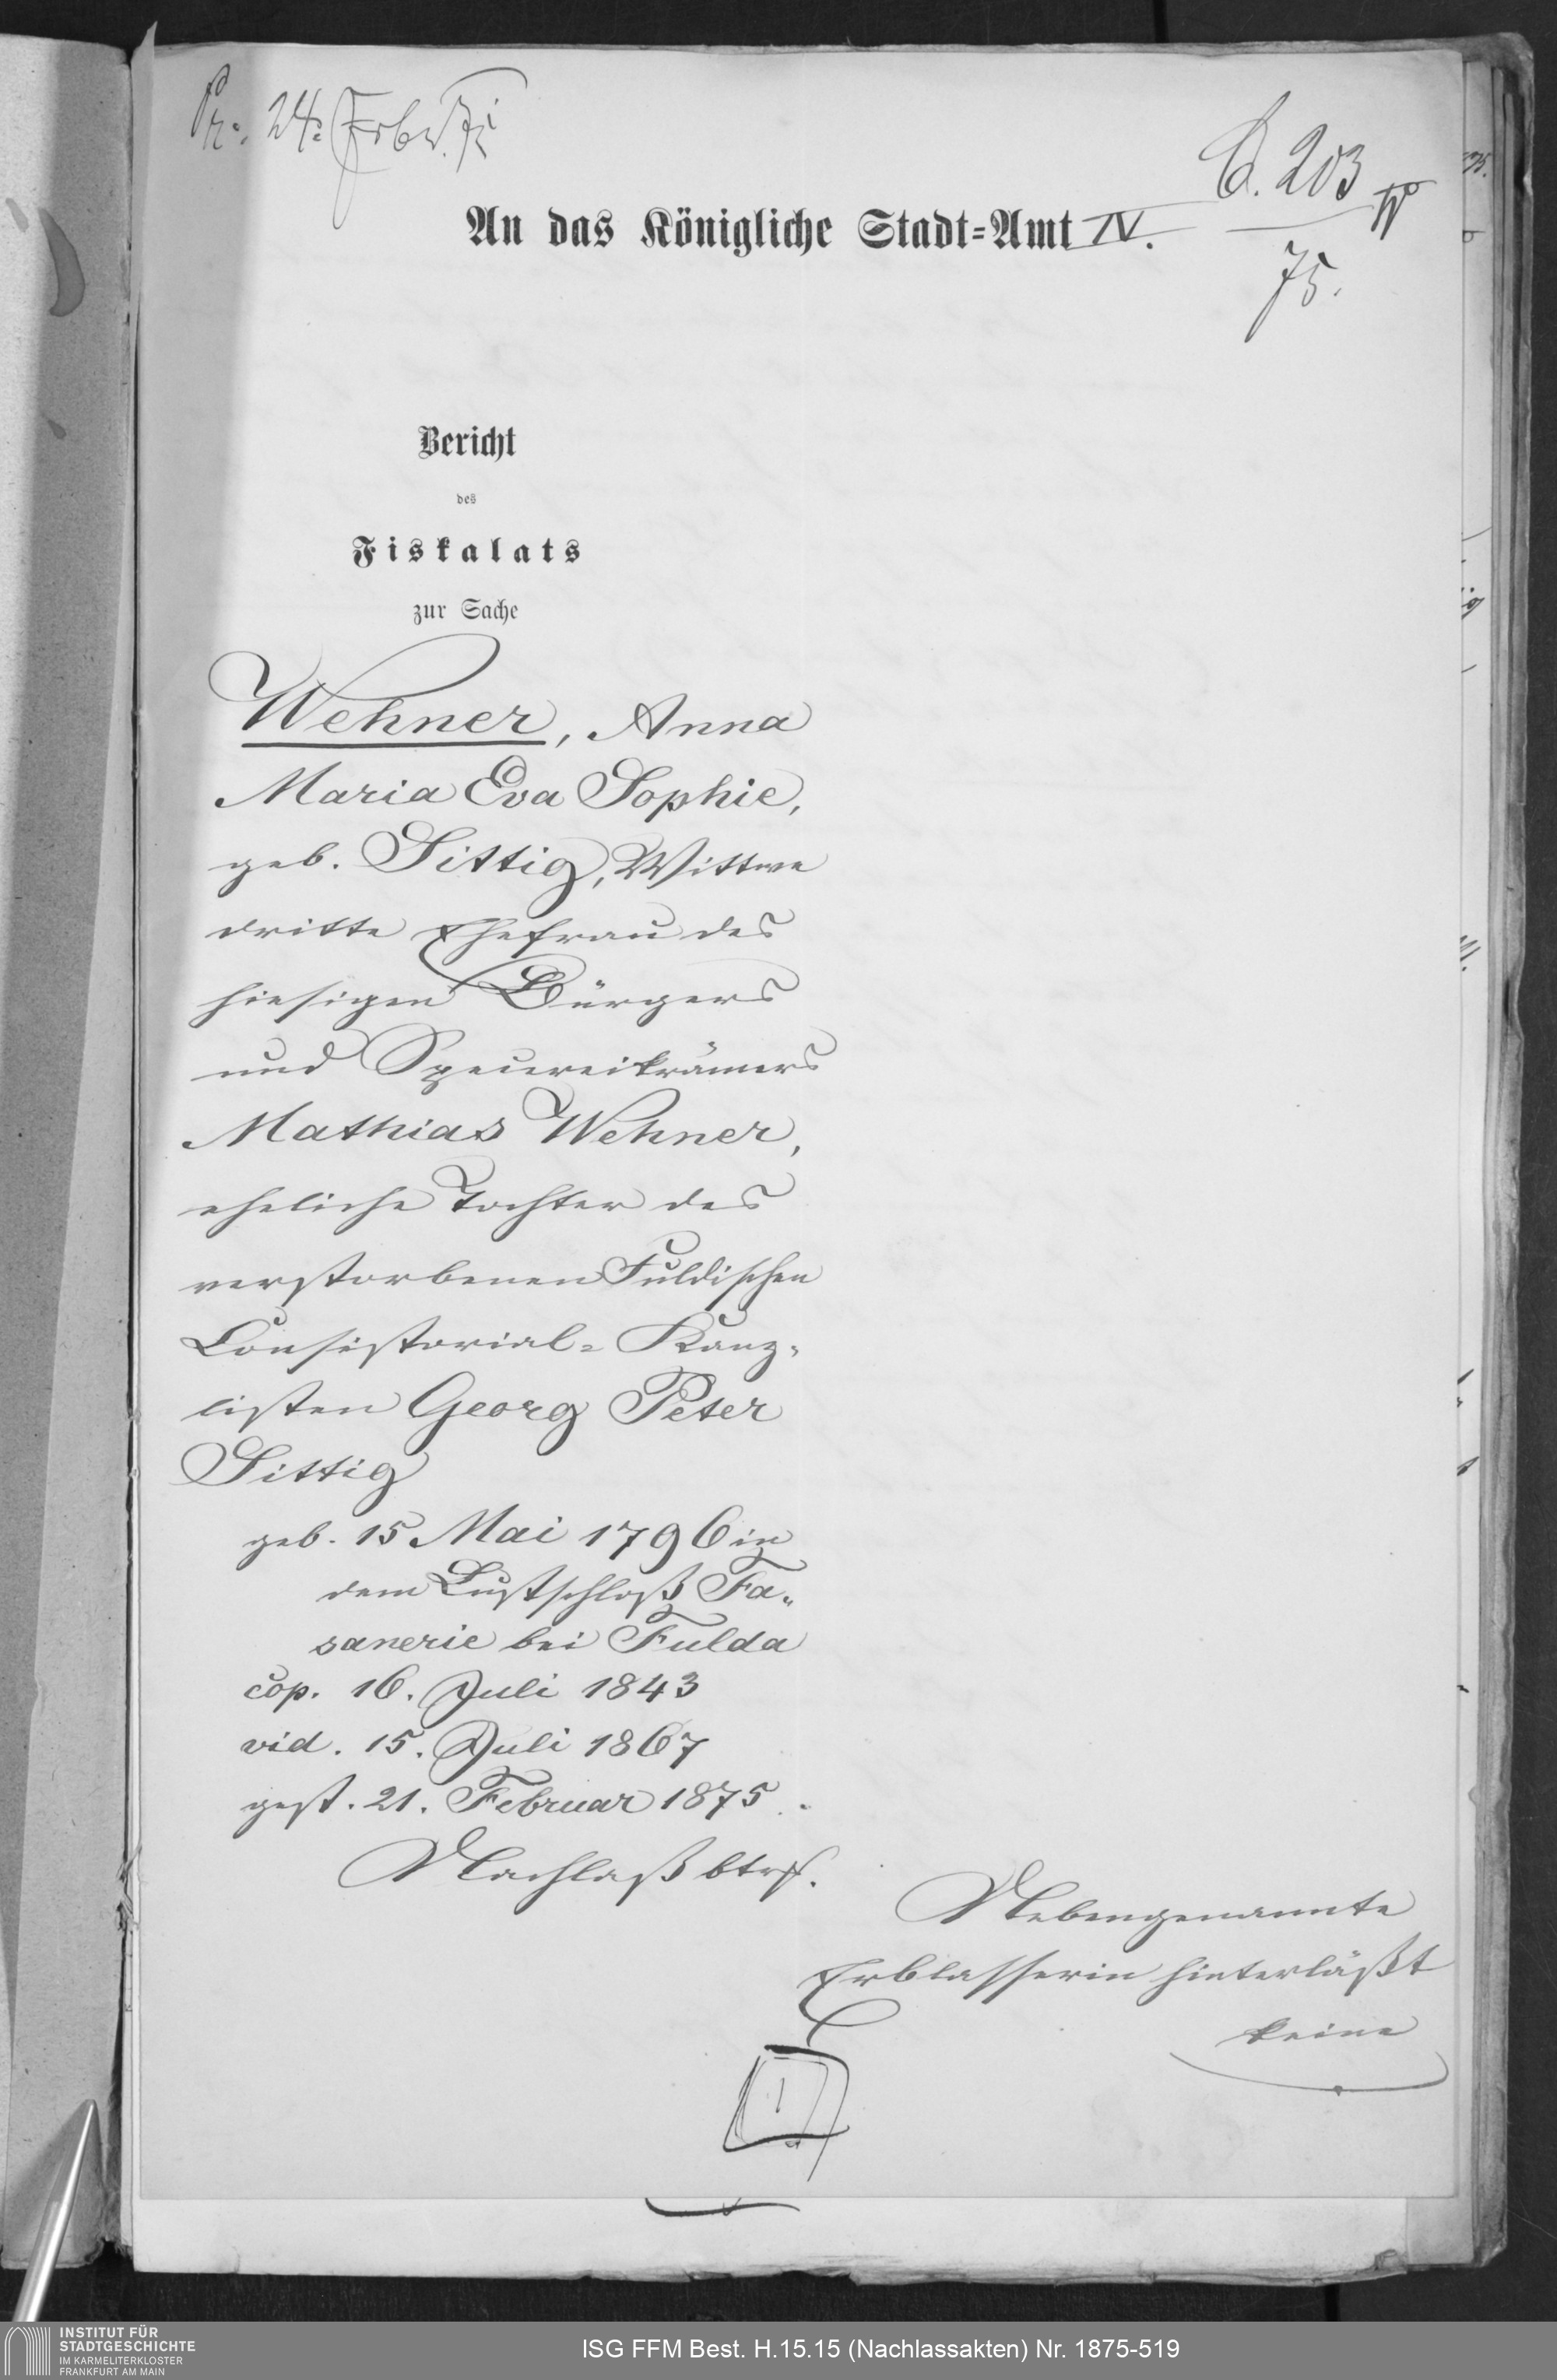 Pr. 24. Febr. 75
C. 203
75.
An das Königliche Stadt=Amt IV.
Bericht
des
Fiskalats
zur Sache
Wehner, Anna
Maria Eva Sophie,
geb. Sittig, Wittwe
dritte Ehefrau des
hiesigen Bürgers
und Spezereikrämers
Mathias Wehner,
eheliche Tochter des
verstorbenen Fuldischen
Consistorial= Kanz=
listen Georg Peter
Sittig
geb. 15 Mai 1796 in
dem Lustschloß Fa=
sanerie bei Fulda
cop. 16. Juli 1843
vid. 15. Juli 1867
gest. 21. Februar 1875.
Nachlaß btrf.
Nebengenannte
Erblasserin hinterläßt
keine
1
INSTITUT FÜR
STADTGESCHICHTE
IM KARMELITERKLOSTER
FRANKFURT AM MAIN
ISG FFM Best. H.15.15 (Nachlassakten) Nr. 1875-519